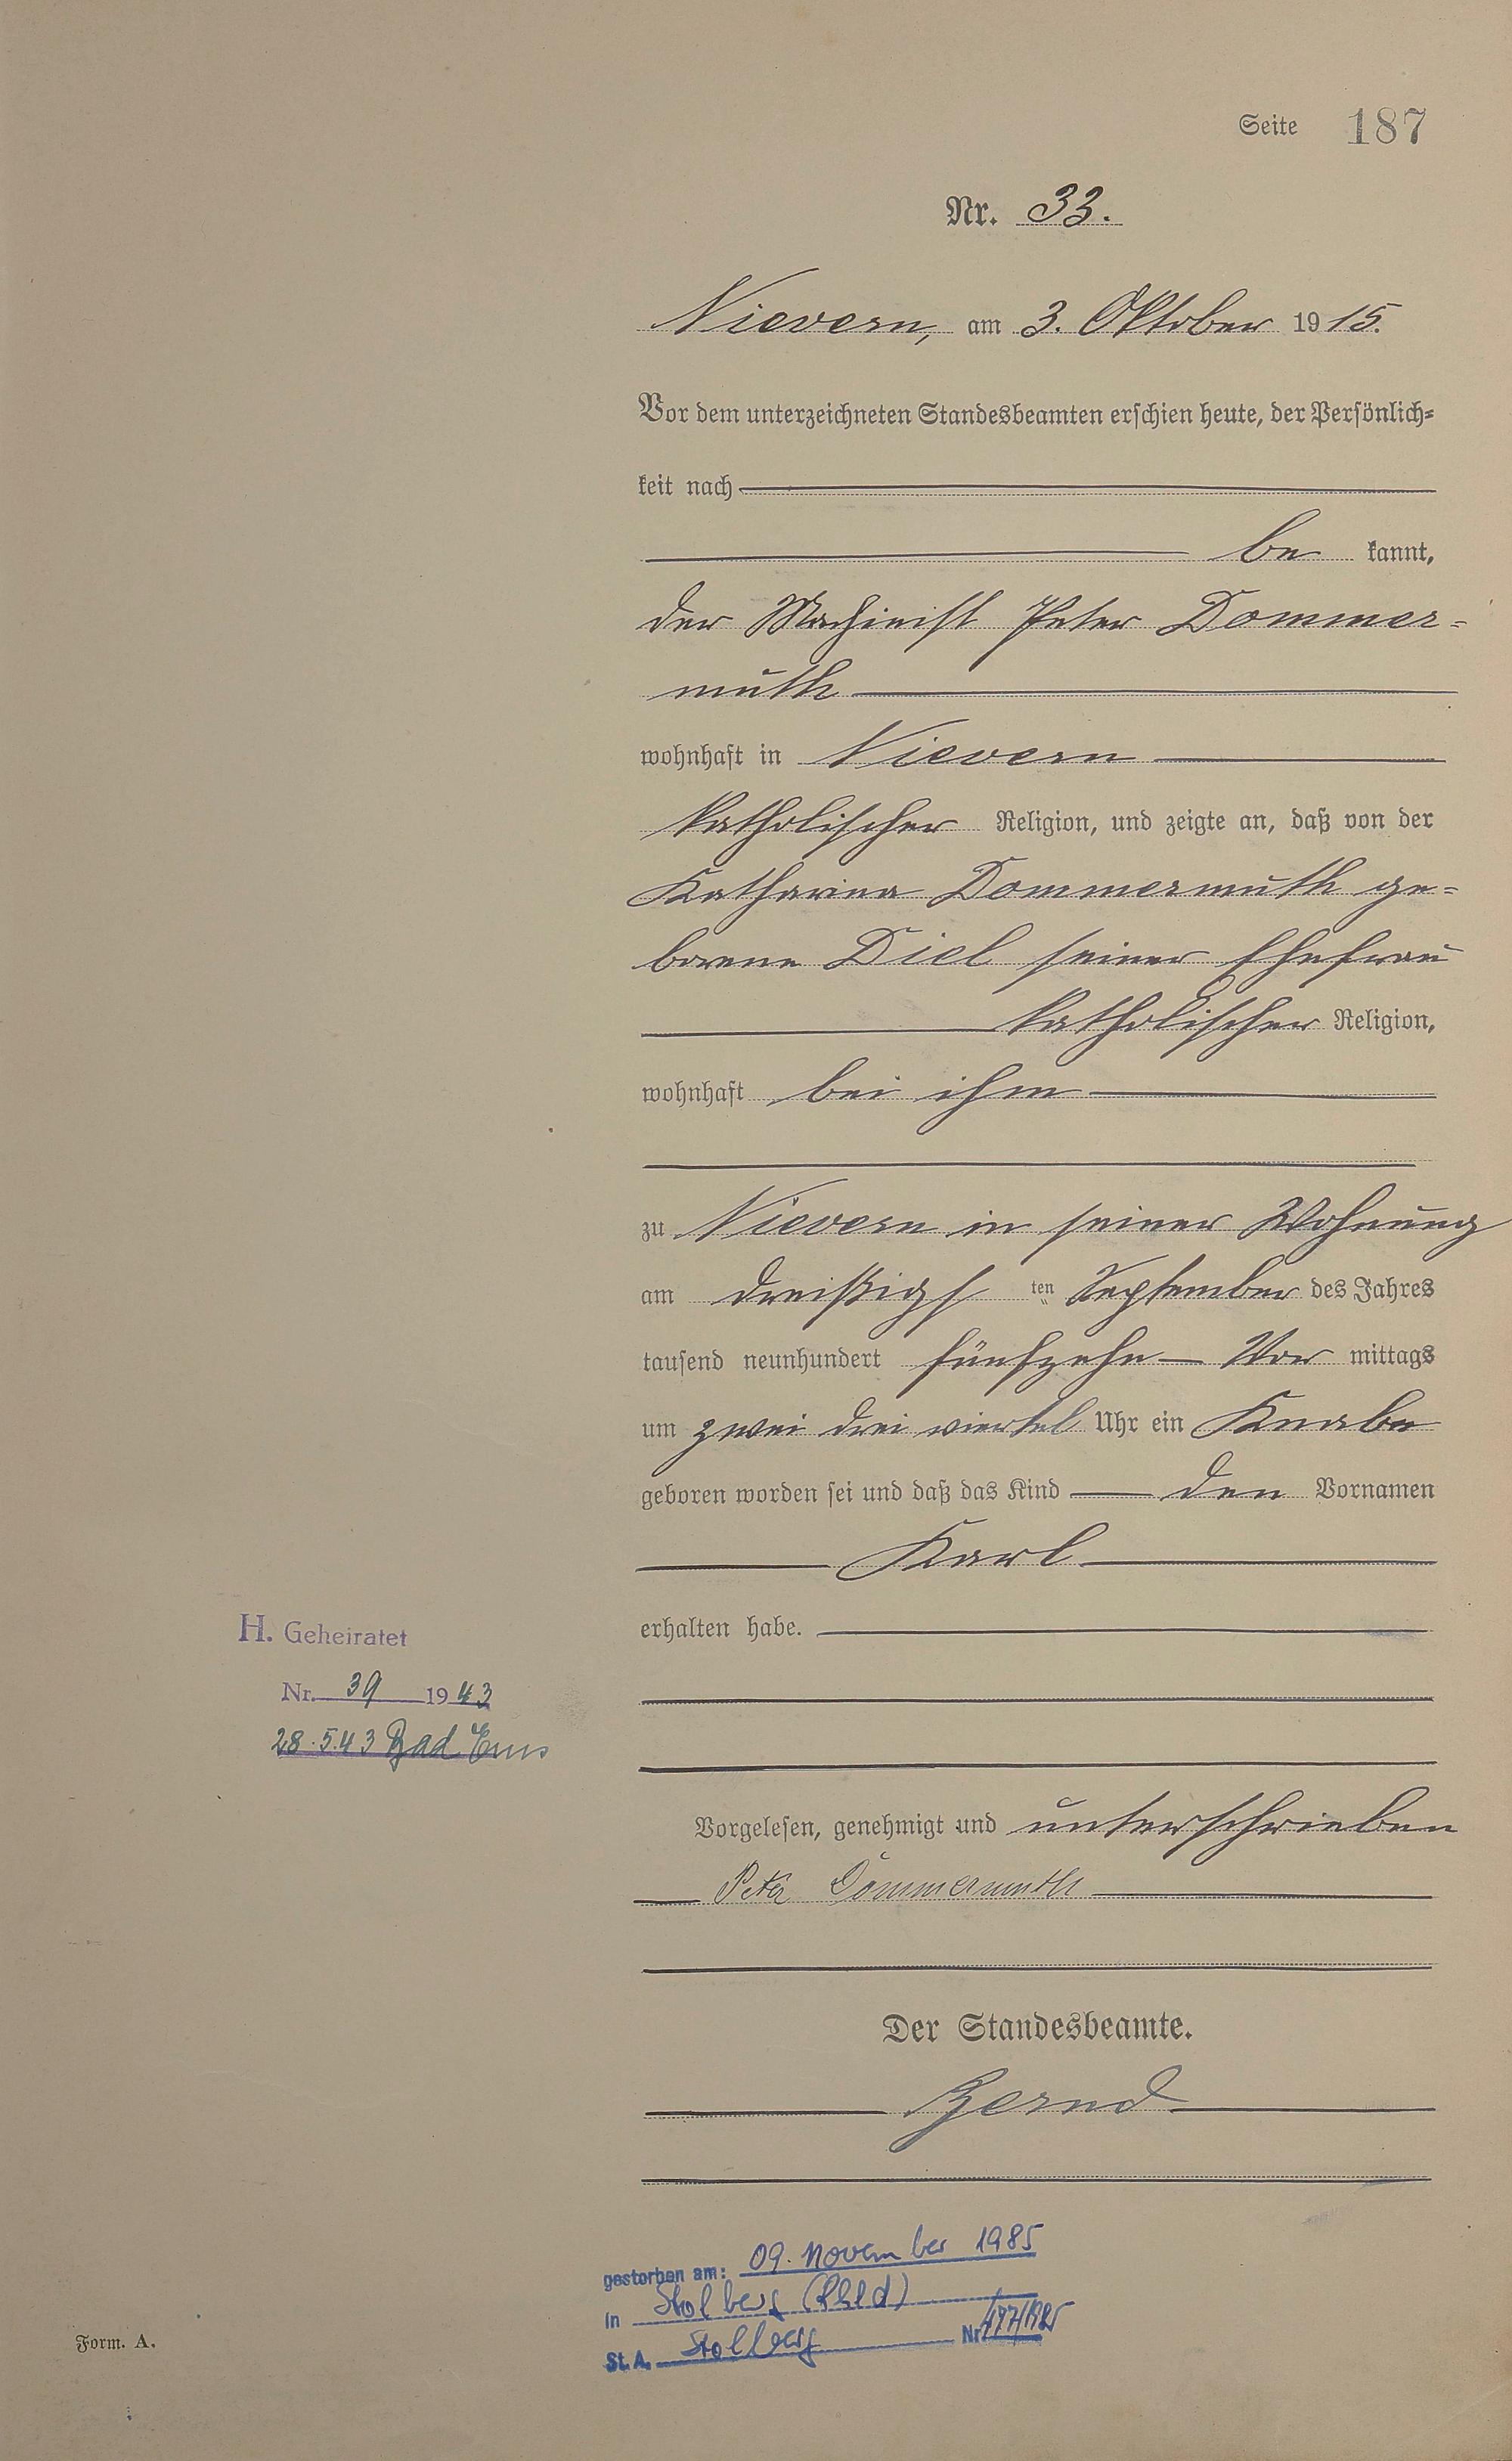 Seite 187
Nr. 33.
Nievern, am 3. Oktober 1915.
Vor dem unterzeichneten Standesbeamten erschien heute, der Persönlich-
keit nach
be kannt,
der Maschinist Peter Dommer-
muth
wohnhaft in Nievern
katholischer Religion, und zeigte an, daß von der
Katharina Dommermuth ge-
borene Diel seiner Ehefrau
katholischer Religion,
wohnhaft bei ihm
zu Nievern in seiner Wohnung
am dreißigs ten September des Jahres
tausend neunhundert fünfzehn Vor mittags
um zwei drei viertel Uhr ein Knabe
geboren worden sei und daß das Kind den Vornamen
Karl
erhalten habe.
H. Geheiratet
Nr. 39 1943
28.5.43 Bad Ems
Vorgelesen, genehmigt und unterschrieben
Peter Dommermuth
Der Standesbeamte.
Bernd
gestorben am: 09. November 1985
in Stolberg (Rhld)
St. A. Stolberg Nr. /1985
Form. A.